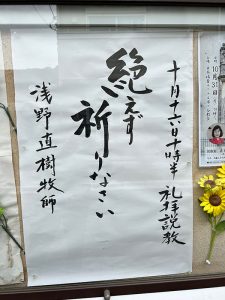 十月十六日十時半 礼拝説教
絶えず祈りなさい
浅野直樹牧師
10月
31日